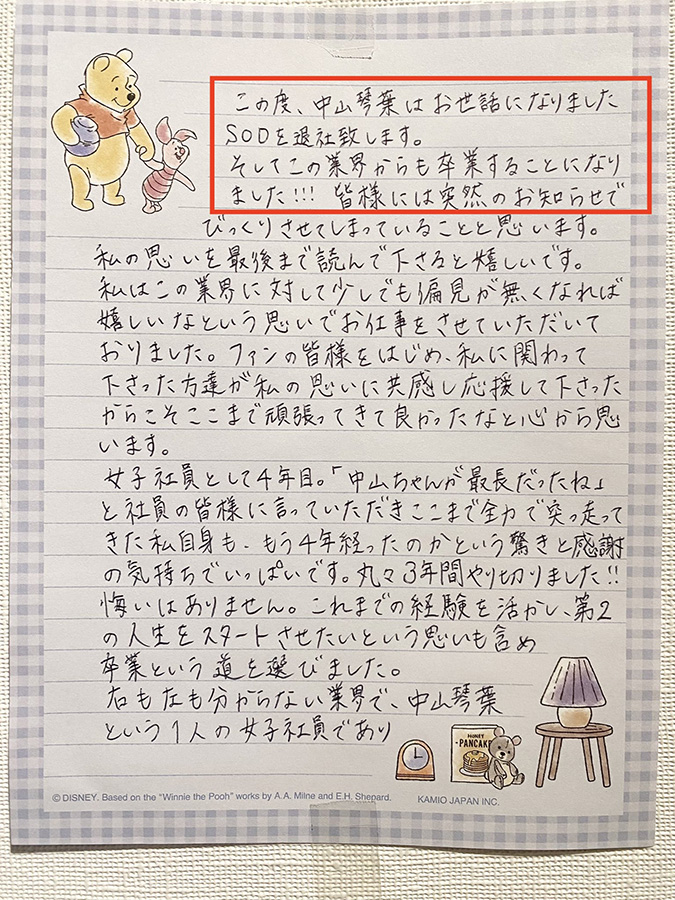 この度、中山琴葉はお世話になりました
SODを退社致します。
そしてこの業界からも卒業することになり
ました!!! 皆様には突然のお知らせで
びっくりさせてしまっていることと思います。
私の思いを最後まで読んで下さると嬉しいです。
私はこの業界に対して少しでも偏見が無くなれば
嬉しいなという思いでお仕事をさせていただいて
おりました。ファンの皆様をはじめ、私に関わって
下さった方達が私の思いに共感し応援して下さった
からこそここまで頑張ってきて良かったなと心から思
います。
女子社員として4年目。「中山ちゃんが最長だったね」
と社員の皆様に言っていただきここまで全力で突っ走って
きた私自身も、もう4年経ったのかという驚きと感謝
の気持ちでいっぱいです。丸々3年間やり切りました!!
悔いはありません。これまでの経験を活かし、第2
の人生をスタートさせたいという思いも含め
卒業という道を選びました。
右も左も分からない業界で、中山琴葉
という1人の女子社員であり
HONEY
PANCAKE
©DISNEY. Based on the "Winnie the Pooh" works by A.A. Milne and E.H. Shepard. KAMIO JAPAN INC.